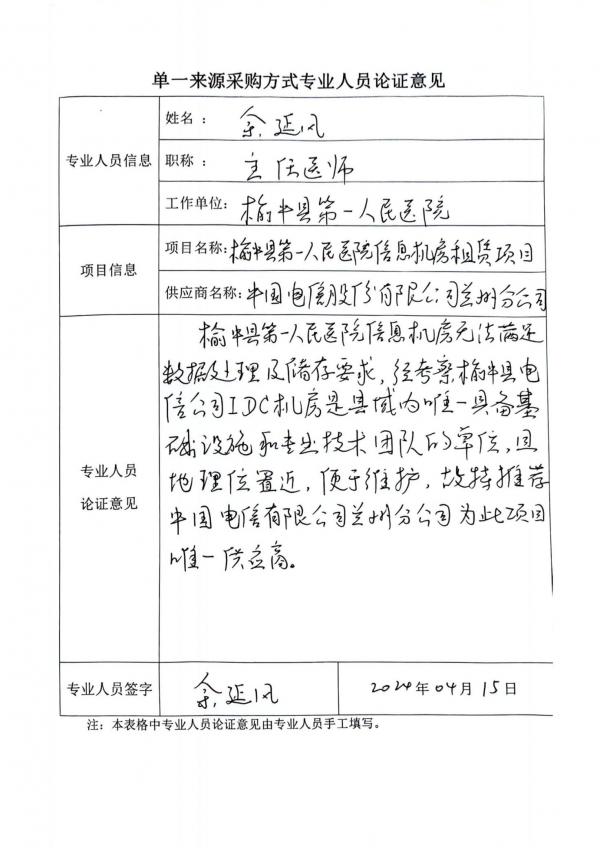 单一来源采购方式专业人员论证意见
专业人员信息
姓名：余延风
职称：主任医师
工作单位：榆中县第一人民医院
项目信息
项目名称：榆中县第一人民医院信息机房租赁项目
供应商名称：中国电信股份有限公司兰州分公司
专业人员
论证意见
榆中县第一人民医院信息机房无法满足
数据处理及储存要求，经考察榆中县电
信公司IDC机房是县域内唯一具备基
础设施和专业技术团队的单位，且
地理位置近，便于维护，故特推荐
中国电信有限公司兰州分公司为此项目
唯一供应商。
专业人员签字
余延风
2024年04月15日
注：本表格中专业人员论证意见由专业人员手工填写。